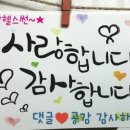 헬스번~★
사랑합니다
감사합니다
댓글♥공감 감사하